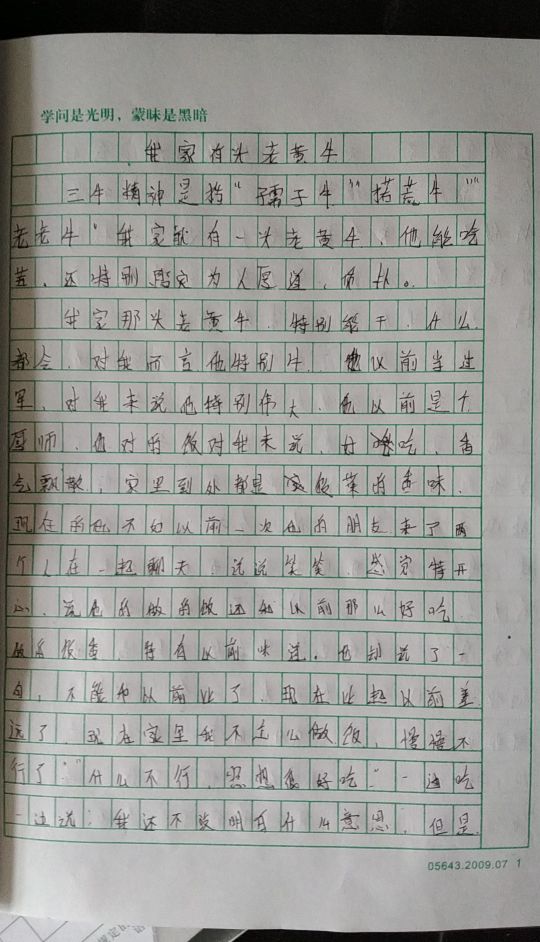 学问是光明，蒙昧是黑暗
我家有头老黄牛
三牛精神是指“孺子牛”“拓荒牛”“
老老牛”我家就有一头老黄牛，他能吃
苦，还特别踏实为人厚道，质朴。
我家那头老黄牛，特别能干，什么
都会，对我而言他特别牛，他以前当过
里，对我来说他特别伟大，他以前是个
厨师，他对的饭对我来说，好吃，香
气飘散，家里到处都是饭菜的香味，
现在的他不如以前一次他的朋友来了两
个人在一起聊天，说说笑笑，感觉特开
心，说他的做的饭还和以前那么好吃
做的很香，特有以前味道，他却说了一
句，不能和以前比了，现在比起以前差
远了，现在家里我不怎么做饭，慢慢不
行了：“什么不行，照想很好吃”一边吃
一边说：我还不致明白什么意思，但是
05643.2009.07 1